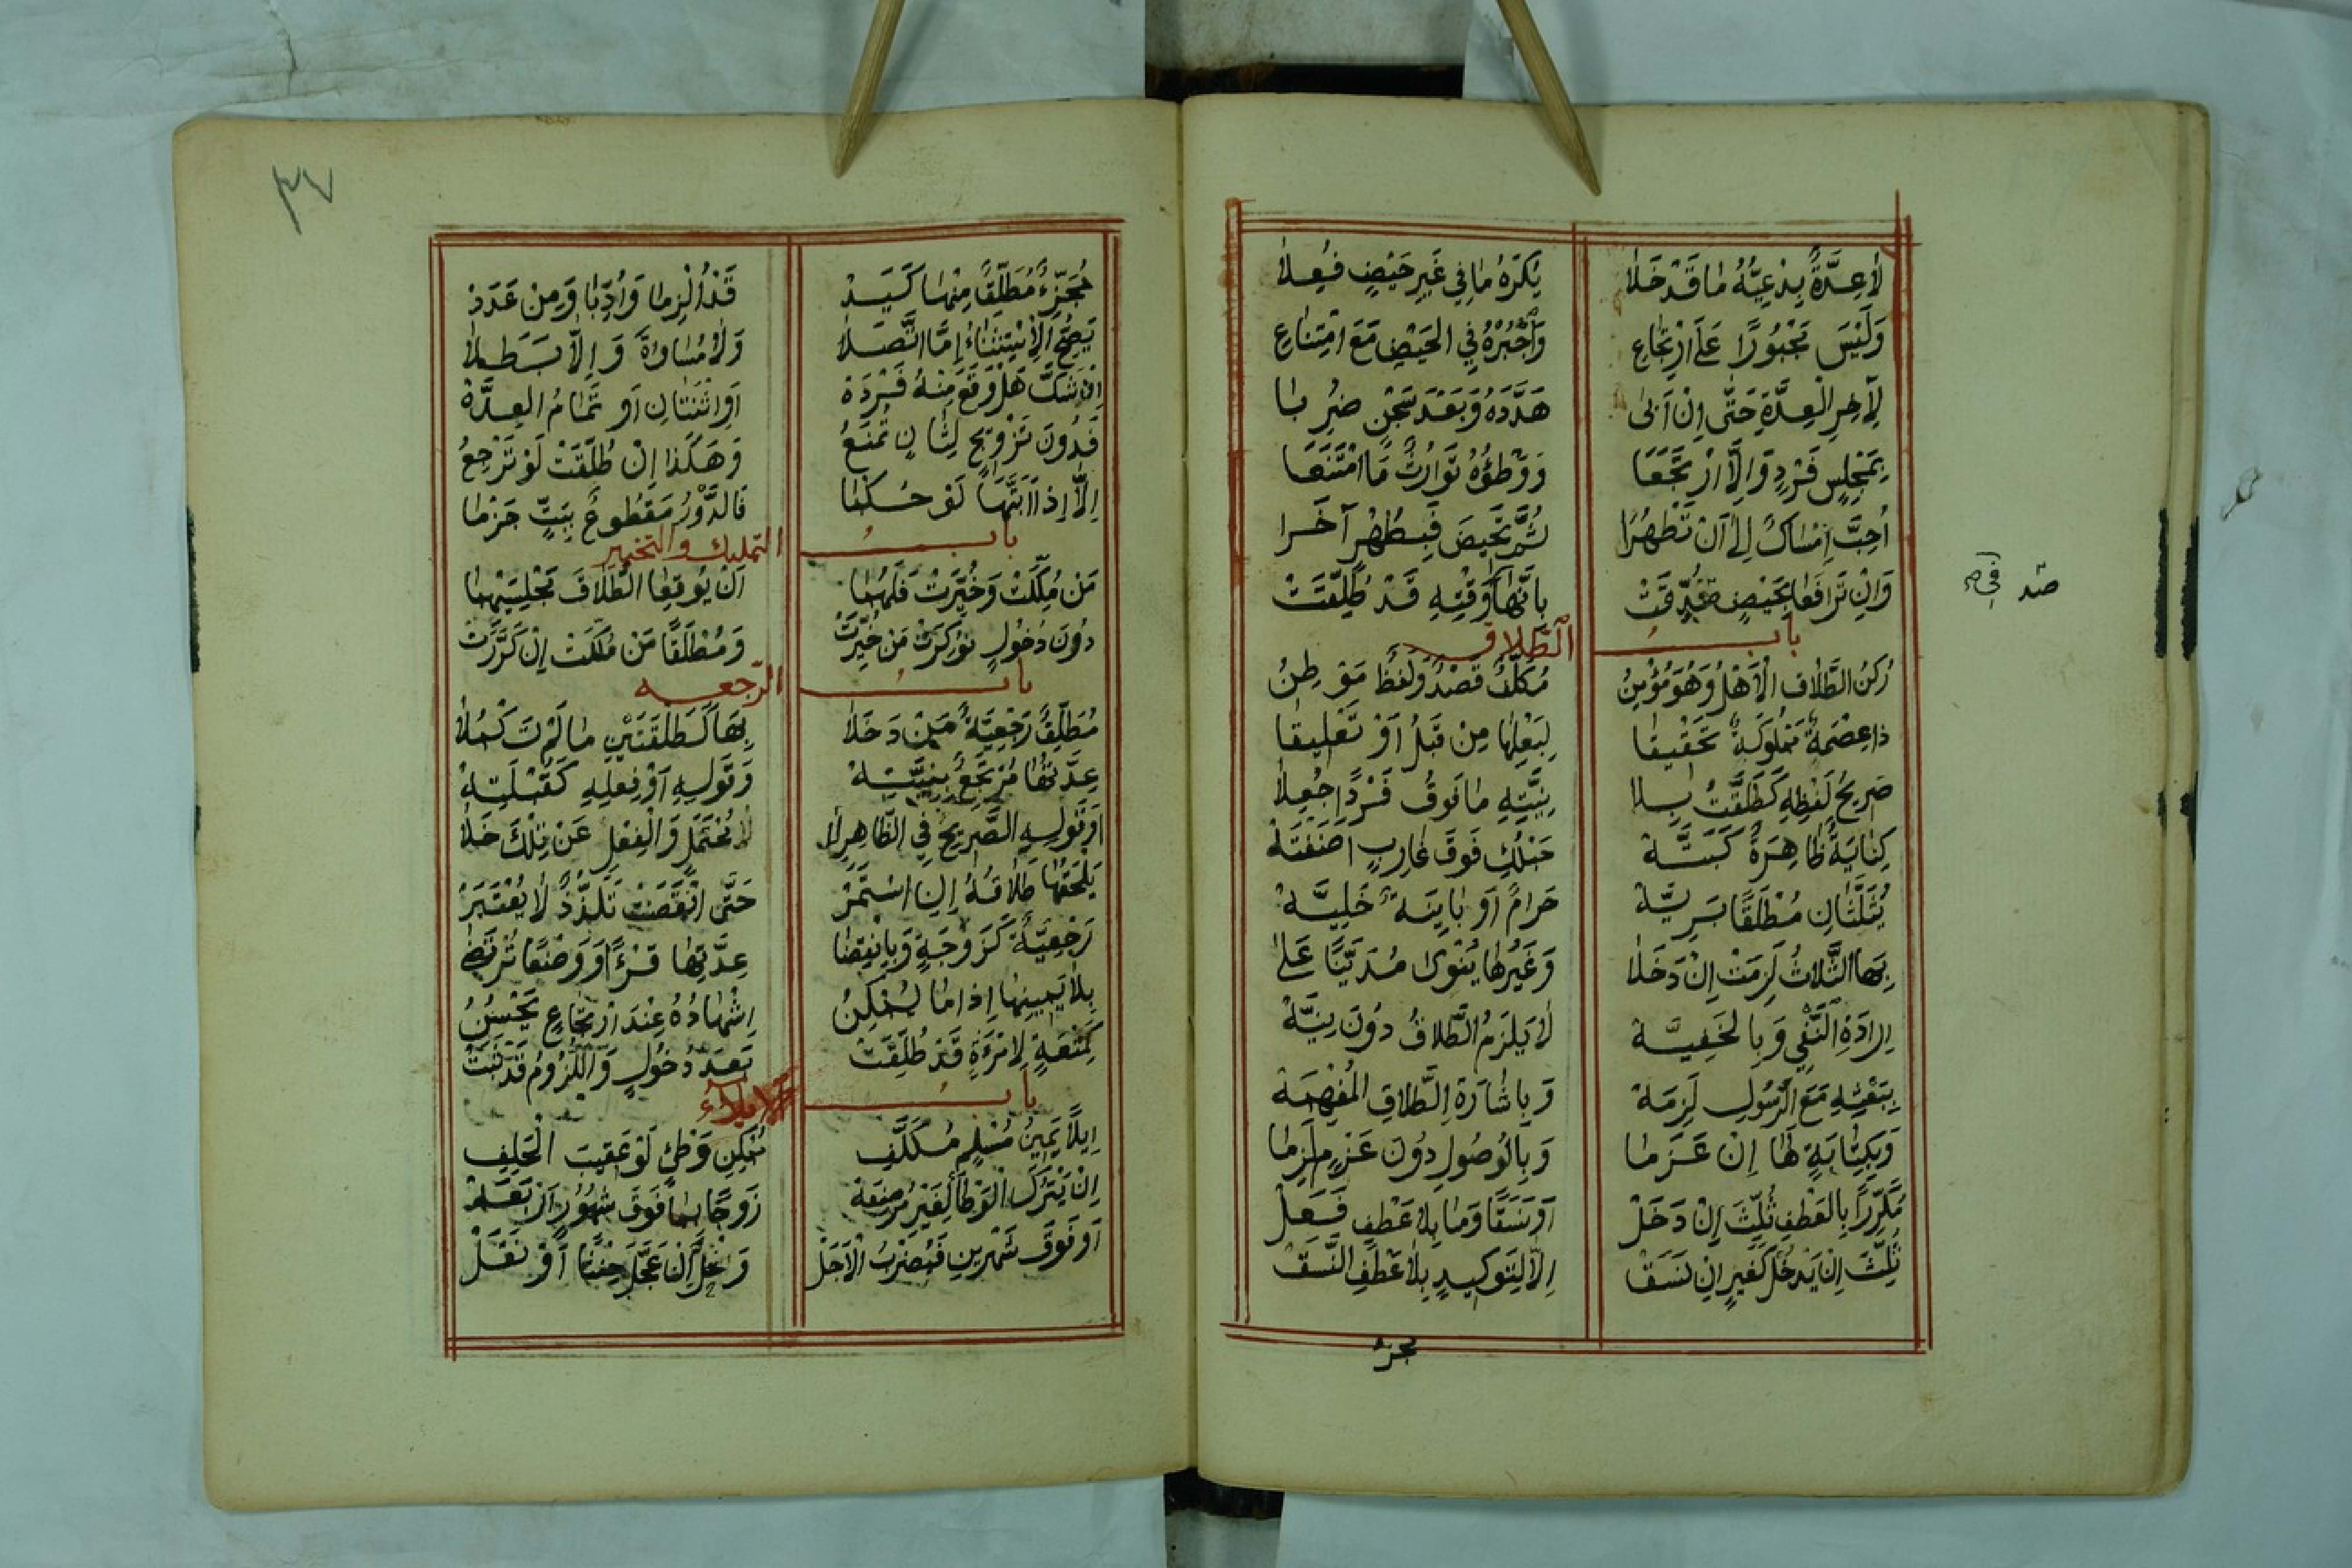 لَا عِدَّةً بِدْعِيُّهُ مَا قَدْ خَلَا يُكْرَهُ مَا فِي غَيْرِ حَيْضٍ فُعِلَا
وَلَيْسَ مَجْبُورًا عَلَى ارْتِجَاعِ وَأُجْبِرُهُ فِي الْحَيْضِ مَعَ امْتِنَاعِ
لِآخِرِ الْعِدَّةِ حَتَّى إِنْ أَبَى هَدَّدَهُ وَبَعْدَ سَجْنٍ ضُرِبَا
بِمَجْلِسٍ فَرْدٍ وَإِلَّا ارْتَجَعَا وَوَطْؤُهُ تَوَارُثٌ مَا امْتَنَعَا
أُحِبَّ إِمْسَاكٌ إِلَى أَنْ تَطْهُرَا ثُمَّ تَحِيضَ فَبِطُهْرٍ آخَرَا
وَإِنْ تَرَافَعَا بِحَيْضٍ صُدِّقَتْ بِأَنَّهَا وَقْتِهِ قَدْ طُلِّقَتْ
صُد في م
بَابُ الطَّلَاقِ
رُكْنُ الطَّلَاقِ الْأَهْلُ وَهُوَ مُؤْمِنُ مُكَلَّفٌ قَصْدٌ وَلَفْظٌ مَوْطِنُ
ذَا عِصْمَةٌ مَمْلُوكَةٌ تَحْقِيقَا لِبَعْلِهَا مِنْ قَبْلُ أَوْ تَعْلِيقَا
صَرِيحُ لَفْظِهِ كَطَلَّقْتُ بِلَا بِنِيَّتِهِ مَا فَوْقَ فَرْدٍ اجْعَلَا
كِنَايَةٌ ظَاهِرَةٌ كَبَتَّهْ حَبْلُكِ فَوْقَ غَارِبٍ
يُثَلَّثَانِ مُطْلَقًا بَرِيَّهْ حَرَامٌ أَوْ بَايِنَةٌ خَلِيَّهْ
بِهَا الثَّلَاثُ لَزِمَتْ إِنْ دَخَلَا وَغَيْرُهَا يُنْوَى مُدَيَّنًا عَلَى
إِرَادَةِ النَّفْيِ وَبِالْخَفِيَّهْ لَا يَلْزَمُ الطَّلَاقُ دُونَ نِيَّهْ
بِبَعْثِهِ مَعَ الرَّسُولِ لَزِمَهْ وَبِإِشَارَةِ الطَّلَاقِ الْمُفْهِمَهْ
وَبِكِتَابَةٍ لَهَا إِنْ عَزَمَا وَبِالْوُصُولِ دُونَ عَزْمٍ لَزِمَا
مُكَرِّرًا بِالْعَطْفِ ثُلِّثَ إِنْ دَخَلْ أَوْ نَسَقًا وَمَا بِلَا عَطْفٍ فَعَلْ
ثُلِّثَ إِنْ يَدْخُلْ كَغَيْرٍ إِنْ نَسَقْ إِلَّا لِتَوْكِيدٍ بِلَا عَطْفِ النَّسَقْ
مجزئ
٣٧
مُجَزِّئٌ مُطَلِّقًا مِنْهَا كَيَدْ قَدْ أُلْزِمَا وَأُدِّبَا وَمِنْ عَدَدْ
يَصِحُّ الْاِسْتِثْنَاءُ إِمَّا اتَّصَلَا وَلَا مُسَاوَاةَ وَإِلَّا بَطَلَا
إِنْ شَكَّ هَلْ وَقَعَ مِنْهُ فَرْدَهْ أَوِ اثْنَتَانِ أَوْ تَمَامُ الْعِدَّهْ
فَدُونَ تَزْوِيجٍ لِثَانٍ تُمْنَعُ وَهَكَذَا إِنْ طُلِّقَتْ لَوْ تَرْجِعُ
إِلَّا إِذَا أَبَتَّهَا لَوْ حُكْمَا فَالدَّوْرُ مَقْطُوعٌ بِبَتٍّ جَزْمَا
بَابُ التمليك والتخيير
مَنْ مُلِّكَتْ وَخُيِّرَتْ فَلَهُمَا أَنْ يُوقِعَا الطَّلَاقَ مَجْلِسَيْهِمَا
دُونَ دُخُولٍ نُوكِرَتْ مَنْ خُيِّرَتْ وَمُطْلَقًا مَنْ مُلِّكَتْ إِنْ كَرَّرَتْ
بَابُ الرجعه
مُطَلِّقٌ رَجْعِيَّةً مَنْ دَخَلَا بِهَا كَطَلْقَتَيْنِ مَا لَمْ تَكْمُلَا
عِدَّتُهَا مُرْتَجِعٌ بِنِيَّتِهْ وَقَوْلِهِ أَوْ فِعْلِهِ كَقُبْلَتِهْ
أَوْ قَوْلِهِ الصَّرِيحِ فِي الظَّاهِرِ لَا مُحْتَمَلٍ وَالْفِعْلِ عَنْ تِلْكَ خَلَا
يَلْحَقُهَا طَلَاقُهُ إِنِ اسْتَمَرْ حَتَّى انْقَضَتْ تَلَذُّذٌ لَا يُعْتَبَرْ
رَجْعِيَّةٌ كَزَوْجَةٍ وَبِانْقِضَا عِدَّتِهَا قَرْءًا وَوَضْعًا تُرْتَضَى
بِلَا يَمِينِهَا إِذَا مَا يُمْكِنُ إِشْهَادُهُ عِنْدَ ارْتِجَاعٍ يَحْسُنُ
كَمُتْعَةٍ لِامْرَأَةٍ قَدْ طُلِّقَتْ بَعْدَ دُخُولٍ وَاللُّزُومُ قَدْ
بَابُ الايلاء
إِيلَا يَمِينُ مُسْلِمٍ مُكَلَّفِ مُمْكِنِ وَطْءٍ لَوْ عَقِيبَ الْحَلِفِ
إِنْ يَتْرُكِ الْوَطْأَ لِغَيْرِ مُرْضِعَهْ زَوْجًا بِمَا فَوْقَ شُهُورٍ أَرْبَعَهْ
أَوْ فَوْقَ شَهْرَيْنِ فَيُضْرَبُ الْأَجَلْ أَوْ نَقَلْ